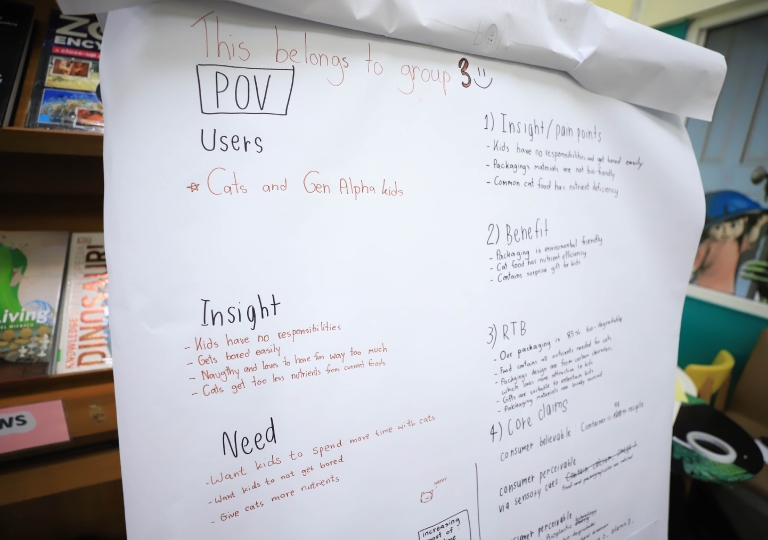 This belongs to group 3
POV
Users
Cats and Gen Alpha kids
Insight
- Kids have no responsibilities
- Gets bored easily
- Naugthy and loves to have fun way too much
- Cats get too less nutrients from current foods
Need
- Want kids to spend more time with cats
- Want kids to not get bored
- Give cats more nutrients
increasing
1) Insight/pain points
- Kids have no responsibilities and get bored easily
- Packagings materials are not bio-friendly
- Common cat food has nutrient deficiency
2) Benefit
- Packaging is environmental friendly
- Cat food has nutrient efficiency
- Contains surprise gift for kids
3) RTB
- Our packaging is 85% bio-degradable
- Food contains all nutrients needed for cats
- Packaging design are from cartoon characters,
which looks more attractive to kids
- Gifts are suitable to entertain kids
- Packaging materials are locally sourced
4) Core claims
consumer believable Container is recycle
consumer perceivable
via sensory cues
consumer perceivable
ENCY
Living
DINOSAUR
KNOWLEDGE
NS